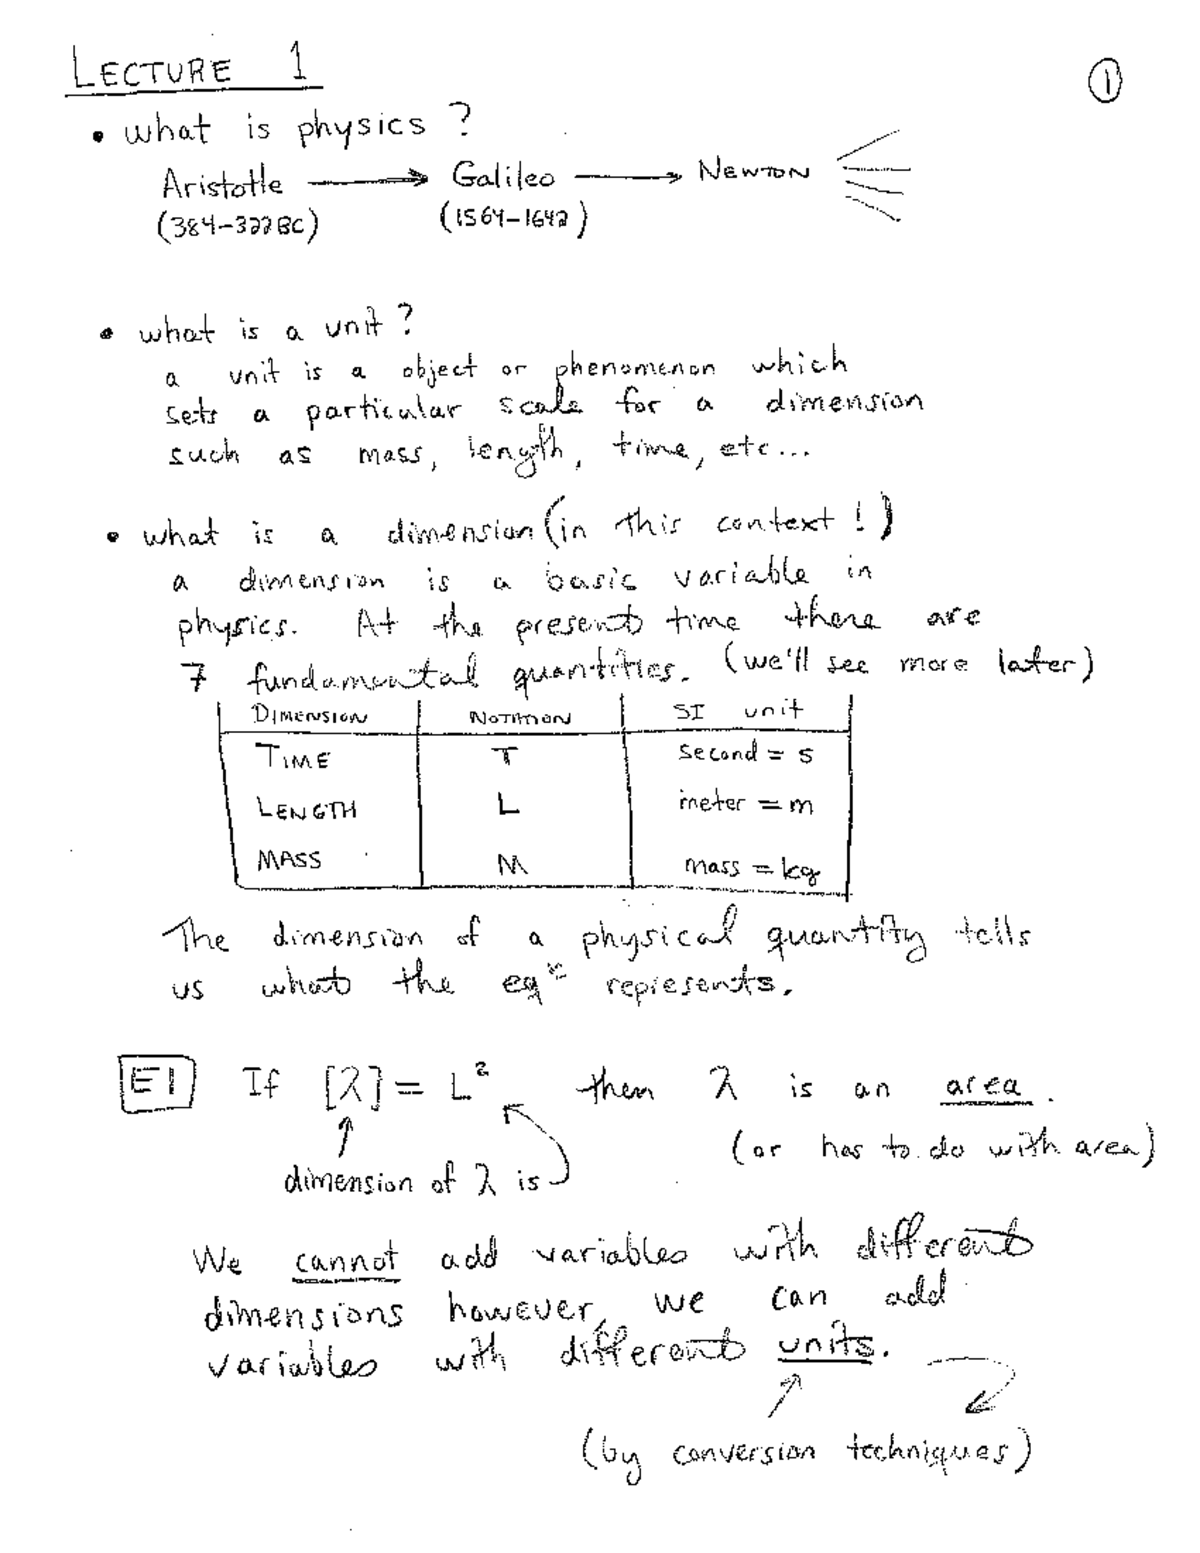 LECTURE 1
①
• what is physics ?
Aristotle → Galileo → NEWTON
(384-322BC) (1564-1642)
• what is a unit ?
a unit is a object or phenomenon which
sets a particular scale for a dimension
such as mass, length, time, etc...
• what is a dimension (in this context !)
a dimension is a basic variable in
physics. At the present time there are
7 fundamental quantities. (we'll see more later)
DIMENSION NOTATION SI unit
TIME T second = s
LENGTH L meter = m
MASS M mass = kg
The dimension of a physical quantity tells
us what the eqⁿ represents.
E1 If [λ] = L² then λ is an area.
(or has to do with area)
dimension of λ is
We cannot add variables with different
dimensions however, we can add
variables with different units.
(by conversion techniques)